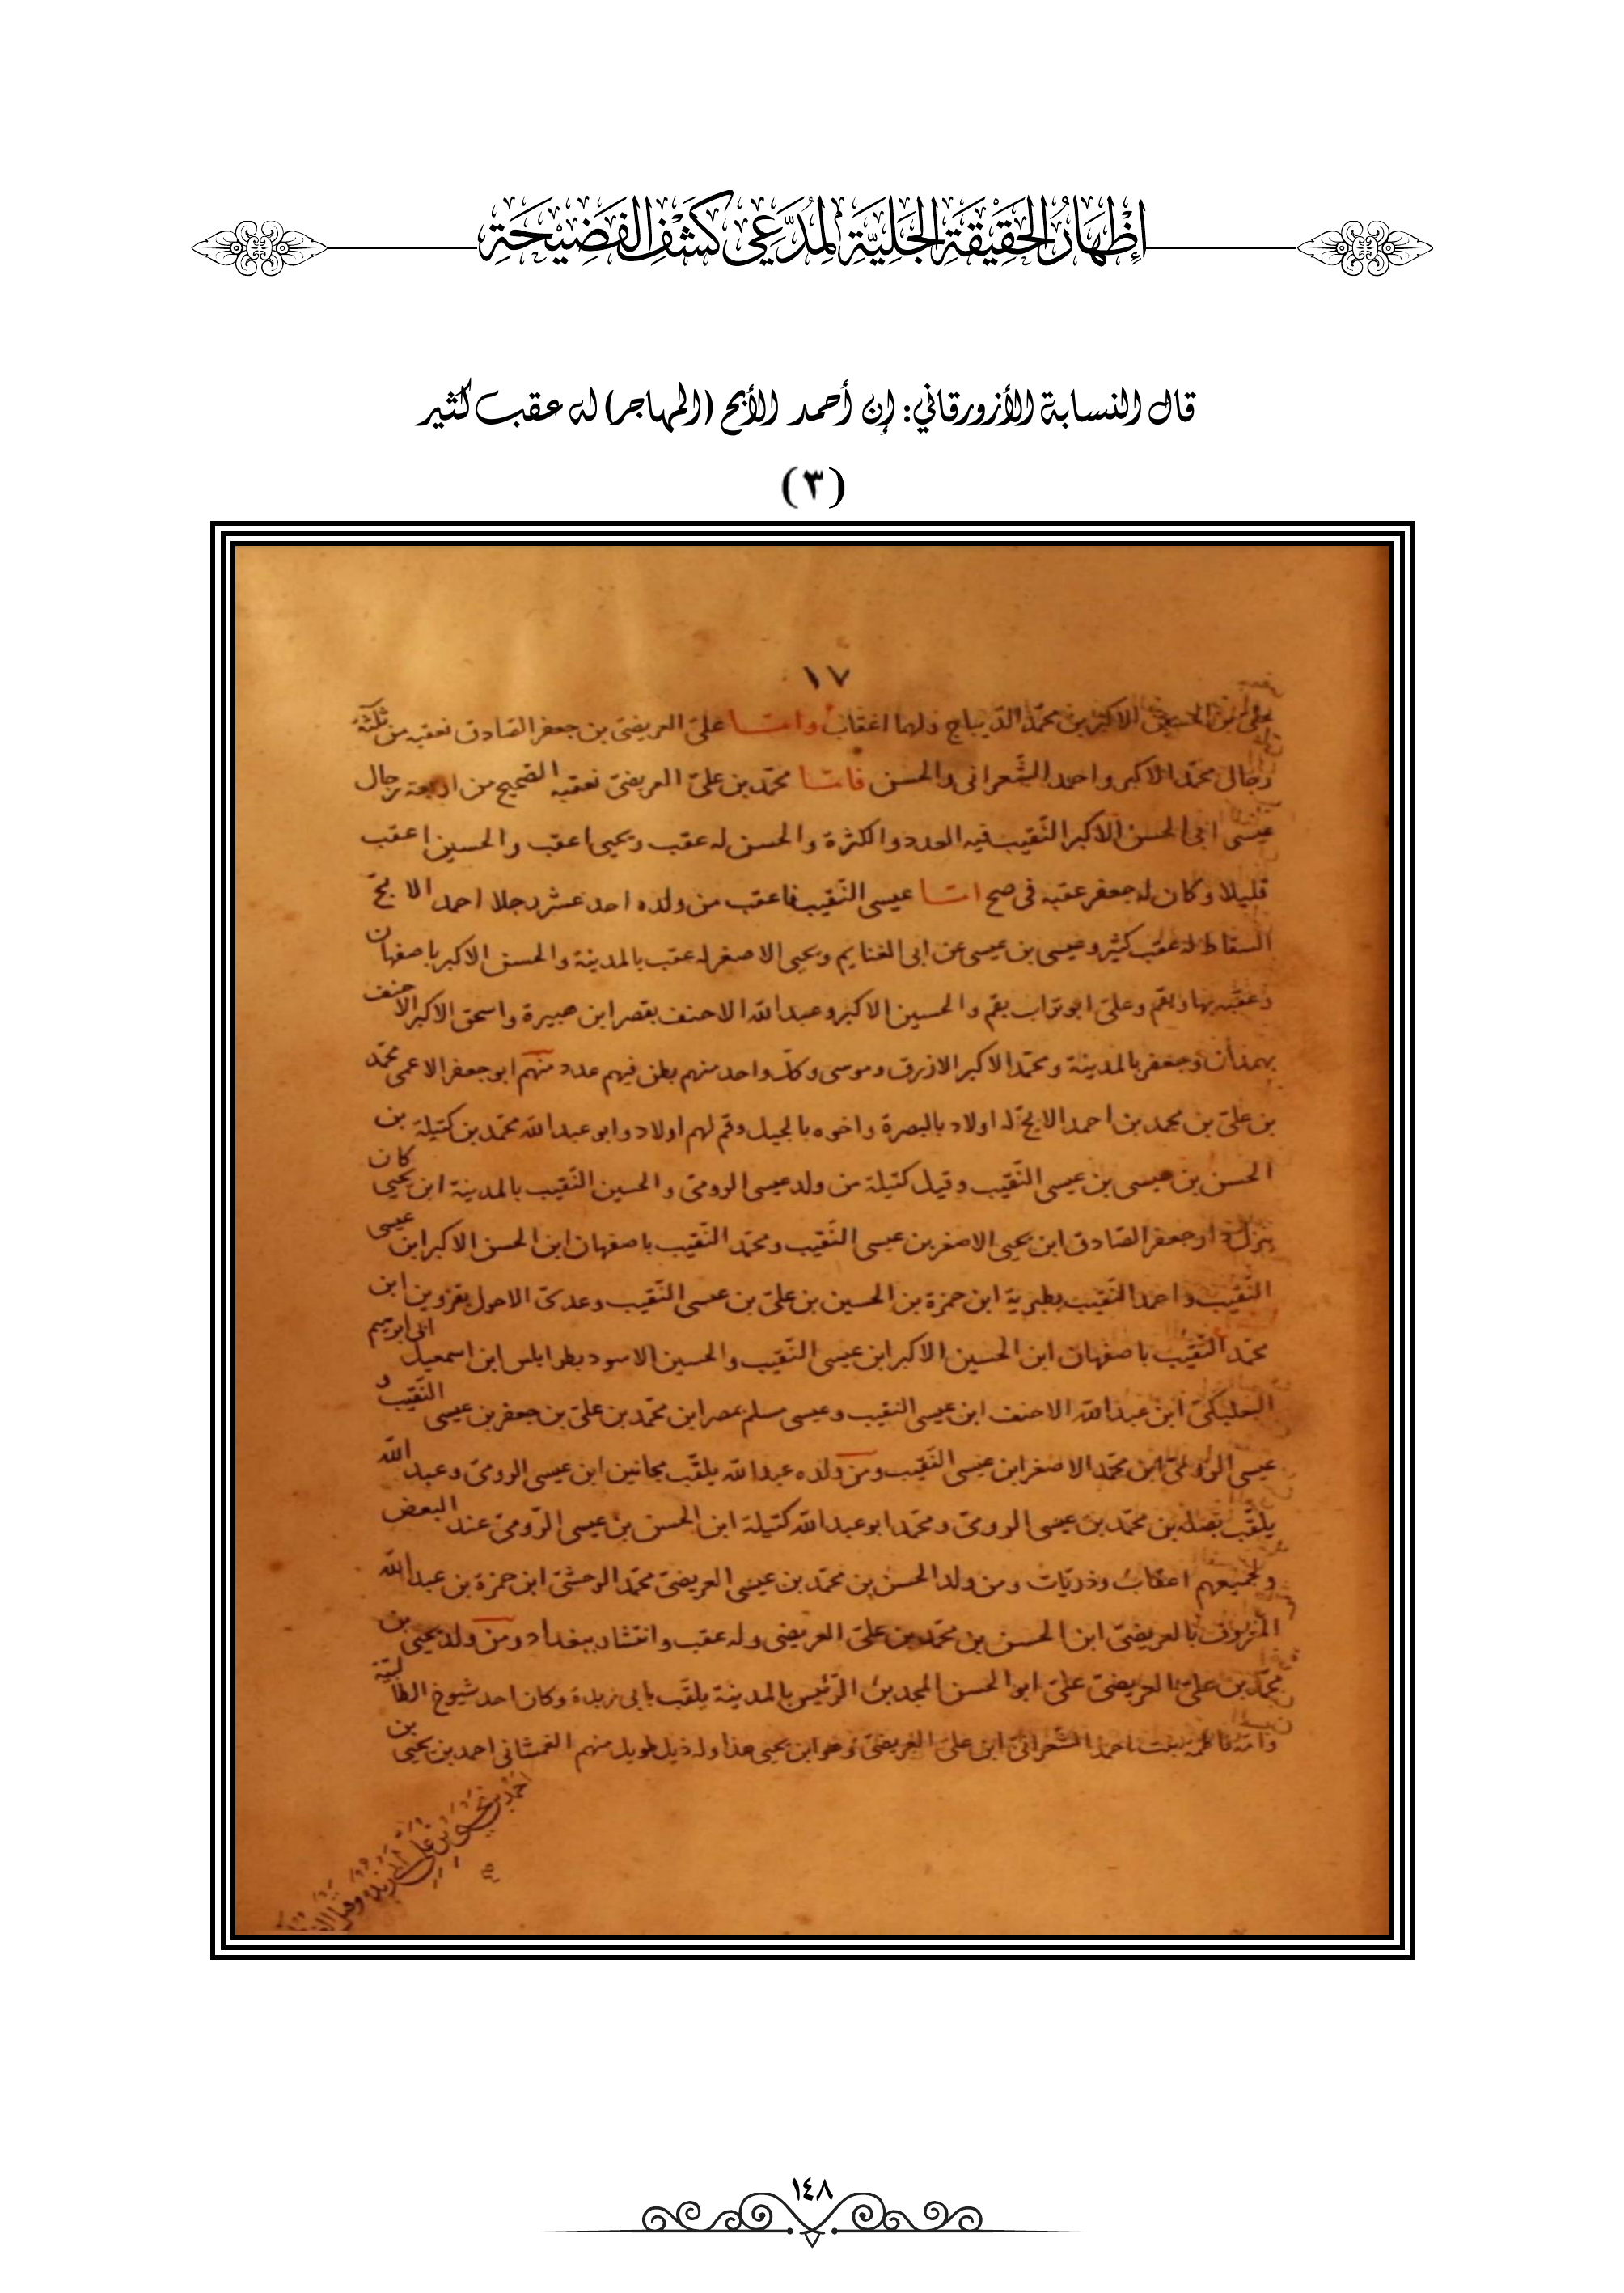 إِظْهَارُ الْحَقِيْقَةِ الْجَلِيَّةِ لِمُدَّعِي كَشْفِ الْفَضِيْحَةِ
قال النسابة الأزورقاني: إن أحمد الأبح (المهاجر) له عقب كثير
(٣)
١٧
الاكبر بن محمّد الدّيباج ولهما اعقاب وامّا علىّ العريضىّ بن جعفر الصّادق فعقبه من ثلثة
رجال محمّد الاكبر واحمد الشّعرانى والحسن فامّا محمّد بن علىّ العريضىّ فعقبه الصّحيح من اربعة رجال
عيسى ابى الحسن الاكبر النّقيب فيه العدد والكثرة والحسن له عقب ويحيى اعقب والحسين اعقب
قليلا وكان له جعفر عقبه فى صح امّا عيسى النّقيب فاعقب من ولده احد عشر رجلا احمد الابحّ
له عقب كثير وعيسى بن عيسى عن ابى الغنايم ويحيى الاصغر له عقب بالمدينة والحسن الاكبر باصفهان
وعقبه بها وبقم وعلىّ ابو تراب بقم والحسين الاكبر وعبد الله الاحنف بقصر ابن هبيرة واسحق الاكبر الاحنف
بهمدان وجعفر بالمدينة ومحمّد الاكبر الازرق وموسى وكلّ واحد منهم بطن فيهم عدد منهم ابو جعفر الاعمى محمّد
بن علىّ بن محمد بن احمد الابحّ له اولاد بالبصرة واخوه بالجبل وقم لهم اولاد وابو عبد الله محمّد بن كتيلة بن
الحسن بن عيسى بن عيسى النّقيب وقيل كتيلة من ولد عيسى الرومىّ والحسين النّقيب بالمدينة ابن يحيى كان
ينزل دار جعفر الصّادق ابن يحيى الاصغر بن عيسى النّقيب ومحمّد النّقيب باصفهان ابن الحسن الاكبر ابن عيسى
النّقيب واحمد النّقيب بطبرية ابن حمزة بن الحسين بن علىّ بن عيسى النّقيب وعدىّ الاحول بقزوين ابن
محمّد النّقيب باصفهان ابن الحسين الاكبر ابن عيسى النّقيب والحسين الاسود بطرابلس ابن اسمعيل ابى ابرهيم
البعلبكىّ ابن عبد الله الاحنف ابن عيسى النقيب وعيسى مسلم بمصر ابن محمّد بن علىّ بن جعفر بن عيسى النّقيب و
عيسى الرومىّ ابن محمّد الاصغر ابن عيسى النّقيب ومن ولده عبد الله يلقّب مجانين ابن عيسى الرومىّ وعبد الله
يلقّب بن محمّد بن عيسى الرومىّ ومحمّد ابو عبد الله كتيلة ابن الحسن بن عيسى الرّومىّ عند البعض
ولجميعهم اعقاب وذريّات ومن ولد الحسن بن محمّد بن عيسى العريضىّ محمّد ابن حمزة بن عبد الله
المعروف بالعريضىّ ابن الحسن بن محمّد بن علىّ العريضى وله عقب وانتشار ببغداد ومن ولد يحيى بن
محمّد بن علىّ العريضىّ علىّ ابو الحسن الرّئيس بالمدينة يلقّب بابى زيدة وكان احد شيوخ الطّالبيّة
وامّه فاطمة بنت احمد الشّعرانىّ ابن علىّ العريضىّ وهو ابن يحيى هذا وله ذيل طويل منهم احمد بن يحيى بن
١٤٨